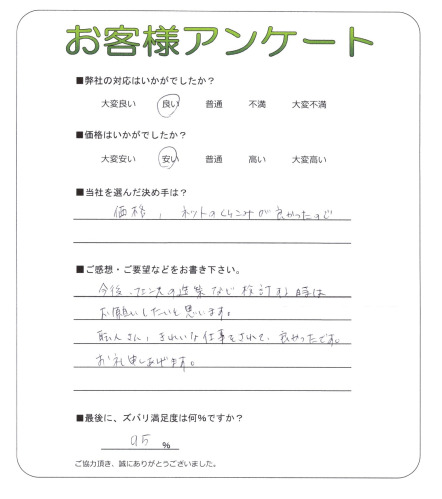 お客様アンケート
■弊社の対応はいかがでしたか?
大変良い 良い 普通 不満 大変不満
■価格はいかがでしたか?
大変安い 安い 普通 高い 大変高い
■当社を選んだ決め手は?
価格, ネットのくちこみが良かったので
■ご感想・ご要望などをお書き下さい。
今後、フェンスの造築など検討する時は
お願いしたいと思います。
職人さん、きれいな仕事をされて、良かったです。
お礼申しあげます。
■最後に、ズバリ満足度は何%ですか?
95 %
ご協力頂き、誠にありがとうございました。